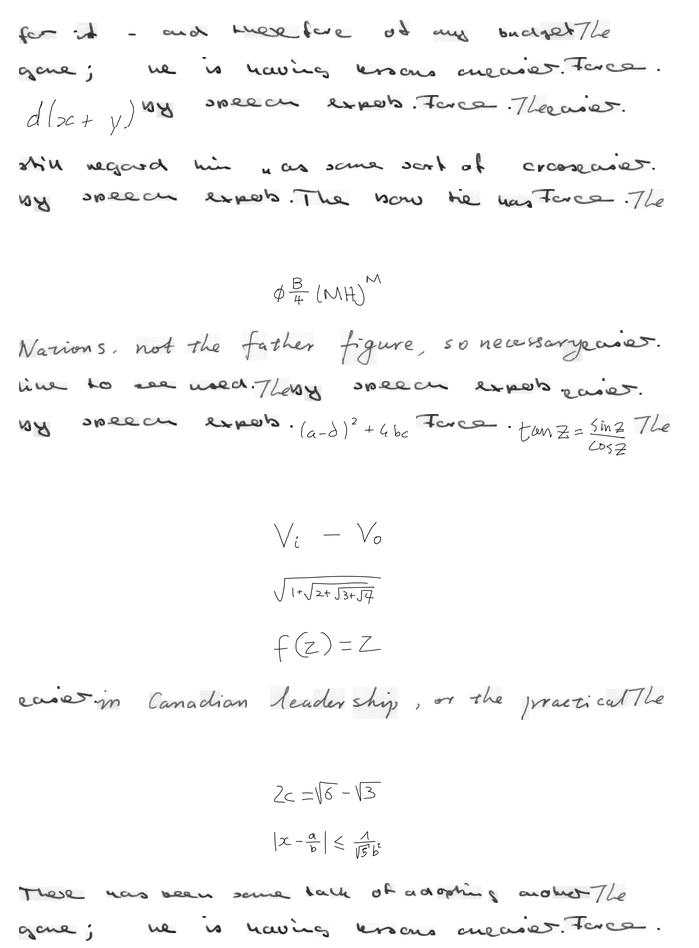 for it - and therefore of any budget The
game ; he is having lessons on easier. Force .
d(x + y) by speech expeb . Force . The easier.
still regard him " as some sort of cross easier.
by speech expeb . The bow tie has Force . The
φ B/4 (MH)^M
Nations, not the father figure, so necessary easier.
line to see used. The by speech expeb easier.
by speech expeb . (a-d)² + 4bc Force . tan z = sin z / cos z The
V_i - V_o
√(1+√(2+√(3+√4)))
f(z) = z
easier. in Canadian leadership , or the practical The
2c = √6 - √3
|x - a/b| ≤ 1/(√5 b²)
There has been some talk of adopting another The
game ; he is having lessons on easier. Force .